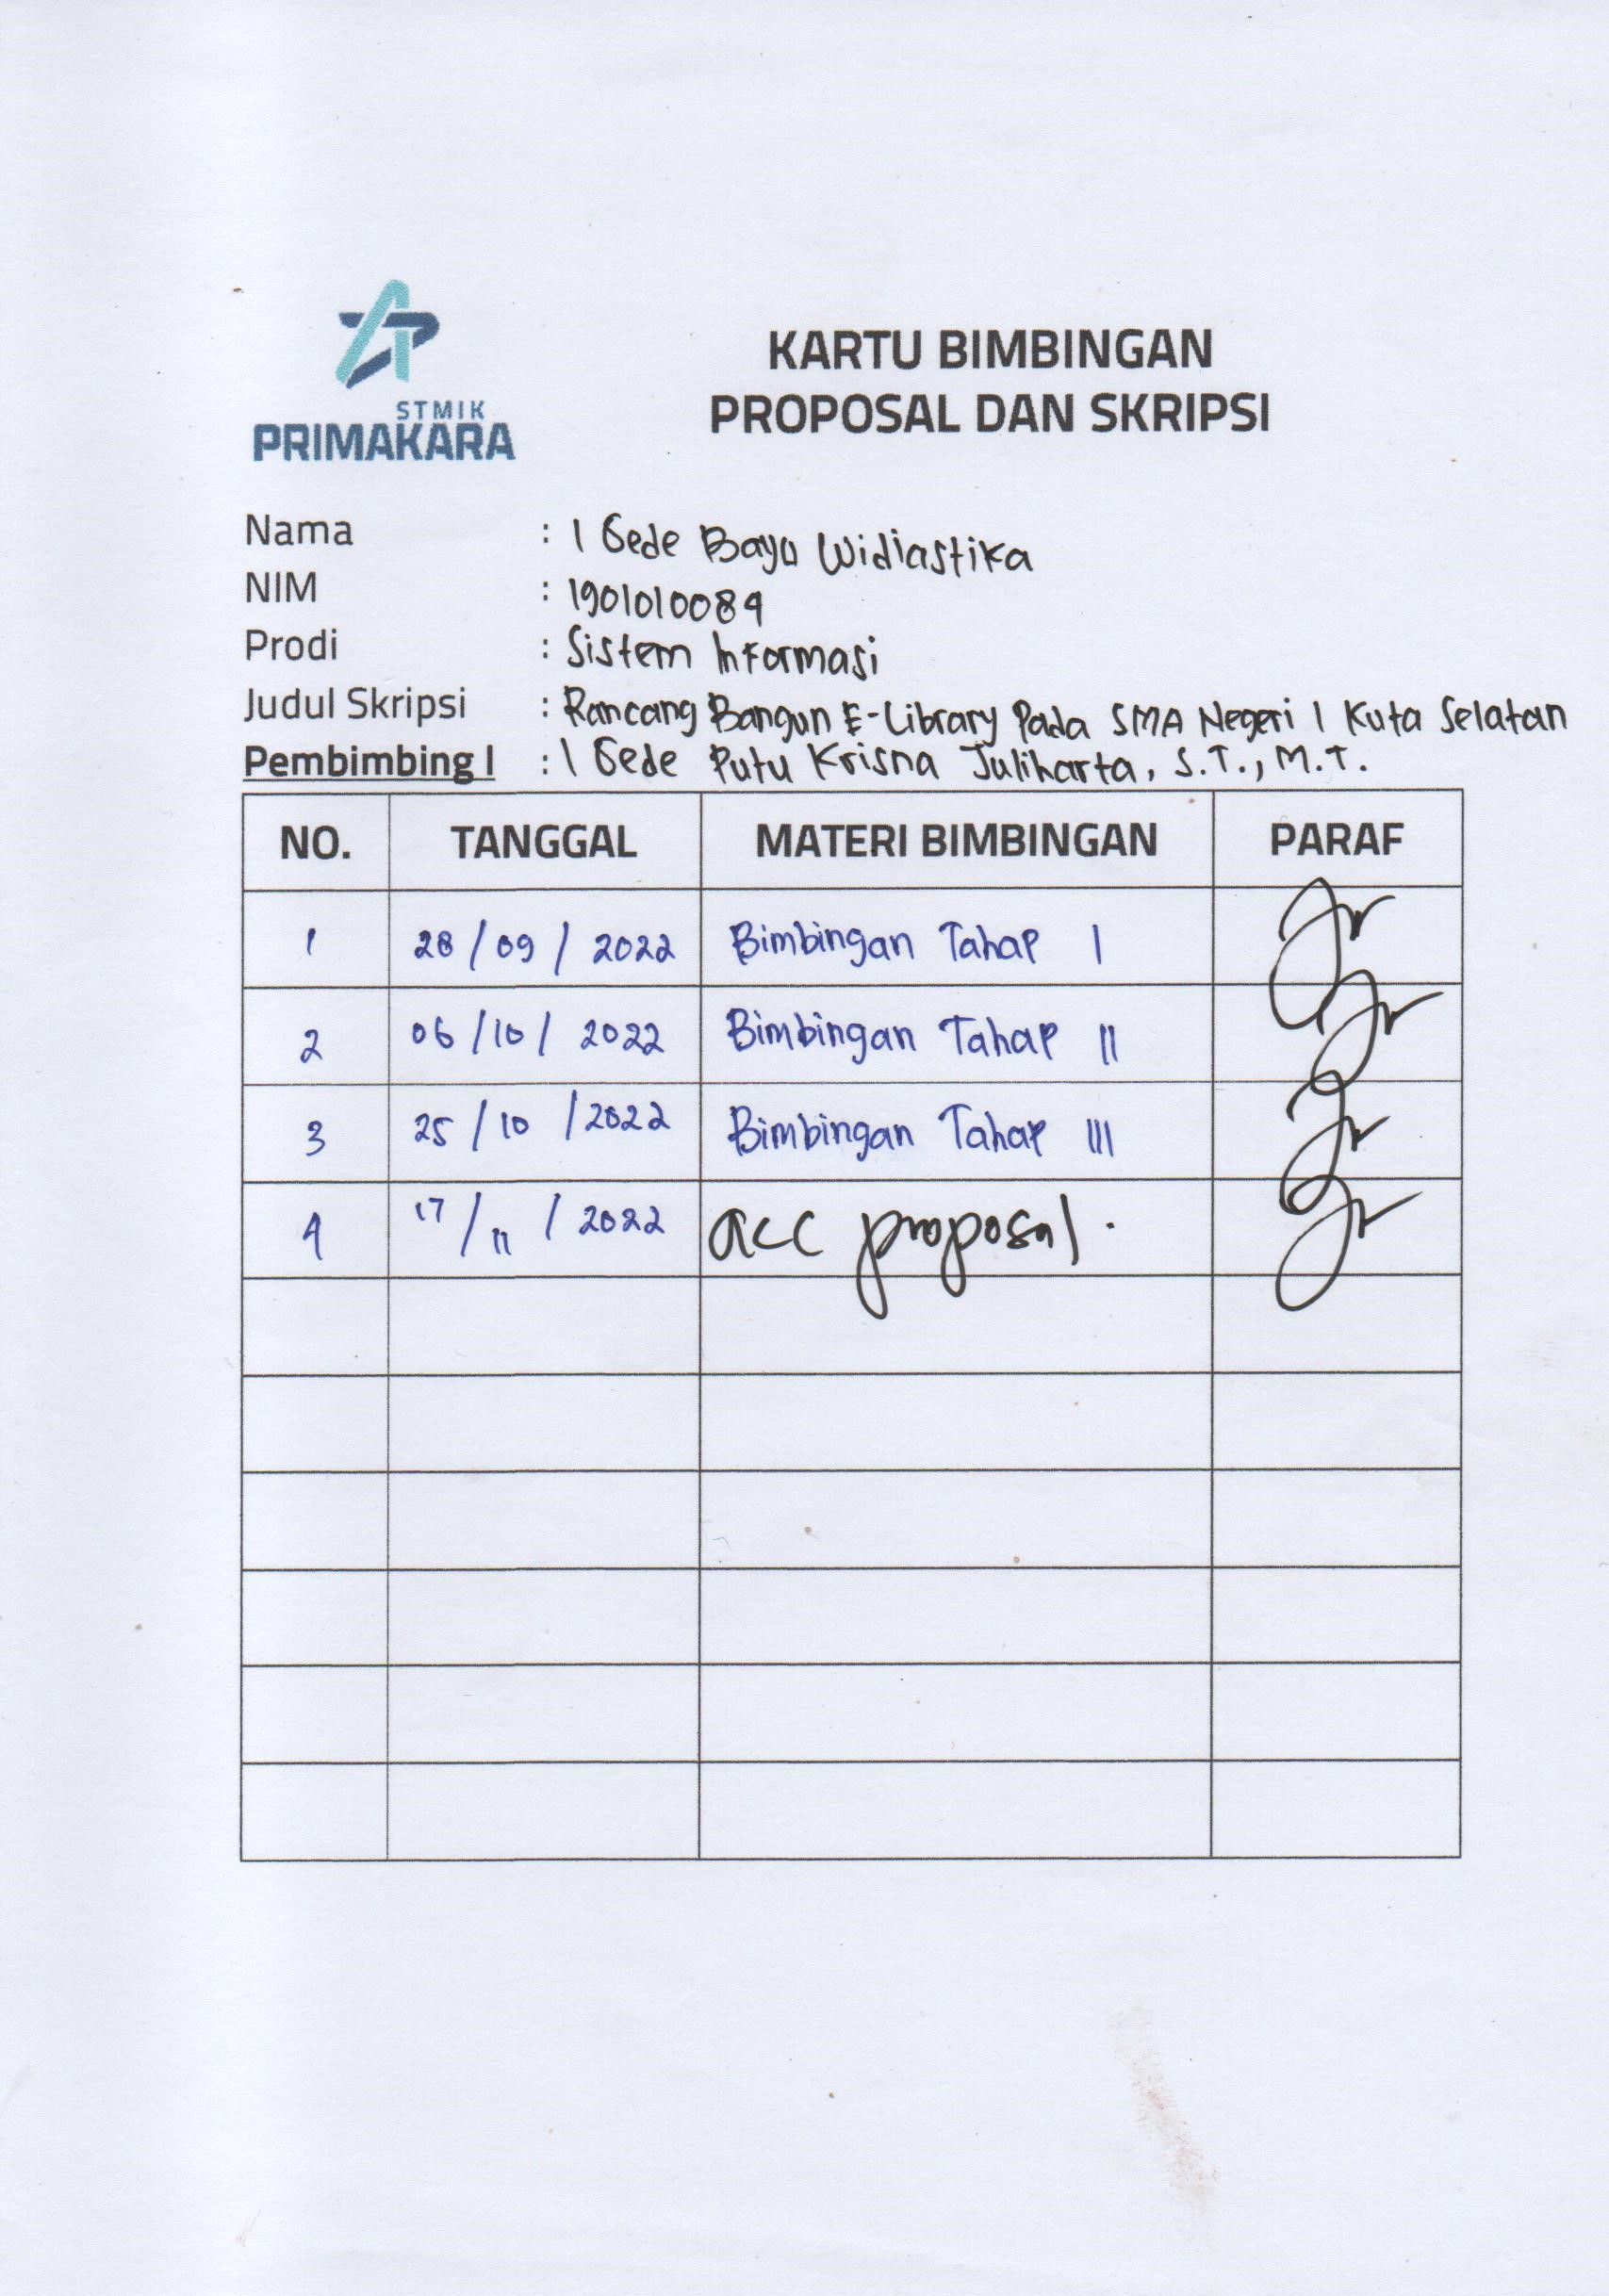 STMIK
PRIMAKARA
KARTU BIMBINGAN
PROPOSAL DAN SKRIPSI
Nama : I Gede Bayu Widiastika
NIM : 1901010084
Prodi : Sistem Informasi
Judul Skripsi : Rancang Bangun E-Library Pada SMA Negeri 1 Kuta Selatan
Pembimbing I : I Gede Putu Krisna Juliharta, S.T., M.T.
NO. TANGGAL MATERI BIMBINGAN PARAF
1 28/09/2022 Bimbingan Tahap I
2 06/10/2022 Bimbingan Tahap II
3 25/10/2022 Bimbingan Tahap III
4 17/11/2022 acc proposal.